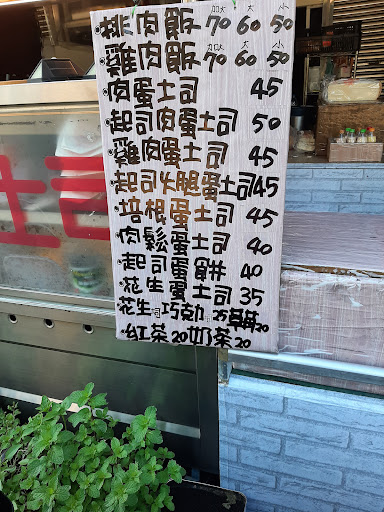 桃肉飯 加大70 大60 小50
雞肉飯 加大70 大60 小50
肉蛋土司 45
起司肉蛋土司 50
雞肉蛋土司 45
起司火腿蛋土司45
培根蛋土司 45
肉鬆蛋土司 40
起司蛋餅 40
花生蛋土司 35
花生司巧克力 25草莓20
紅茶20奶茶20
土司